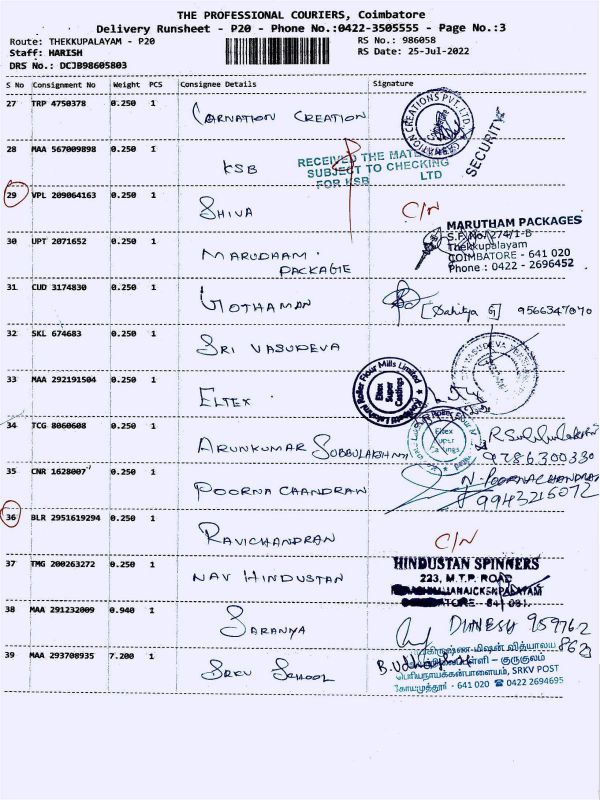 THE PROFESSIONAL COURIERS, Coimbatore
Delivery Runsheet - P20 - Phone No.:0422-3505555 - Page No.:3
Route: THEKKUPALAYAM - P20
RS No.: 986058
Staff: HARISH
RS Date: 25-Jul-2022
DRS No.: DCJB98605803
S No Consignment No Weight PCS Consignee Details Signature
27 TRP 4750378 0.250 1 CARNATION CREATION
CREATIONS PVT. LTD.
SECURITY
28 MAA 567009898 0.250 1 KSB
RECEIVED THE MATE
SUBJECT TO CHECKING
FOR KSB LTD
29 VPL 209064163 0.250 1 SHIVA C/N
30 UPT 2071652 0.250 1 MARUDAAM PACKAGE
MARUTHAM PACKAGES
S.F. No. 274/1-B
Thekkupalayam
COIMBATORE - 641 020
Phone : 0422 - 2696452
31 CUD 3174830 0.250 1 GOTHAMAN [Sahitya G] 9566347070
32 SKL 674683 0.250 1 SRI VASUDEVA
33 MAA 292191504 0.250 1 ELTEX
Lakshmi Roller Flour Mills Limited
Eltex
Super
Castings
34 TCG 8060608 0.250 1 ARUNKUMAR SUBBULAKSHMI
Eltex
Super
9786300330
35 CNR 1628007 0.250 1 POORNA CHANDRAN N. POORNACHANDRAN
9943216072
36 BLR 2951619294 0.250 1 RAVICHANDRAN C/N
37 TMG 200263272 0.250 1 NAV HINDUSTAN
HINDUSTAN SPINNERS
223, M.T.P. ROAD
38 MAA 291232009 0.940 1 SARANYA DINESH 959762
862
39 MAA 293708935 7.200 1 SRKV SCHOOL
வித்யாலய
குருகுலம்
SRKV POST
641 020 ☎ 0422 2694695